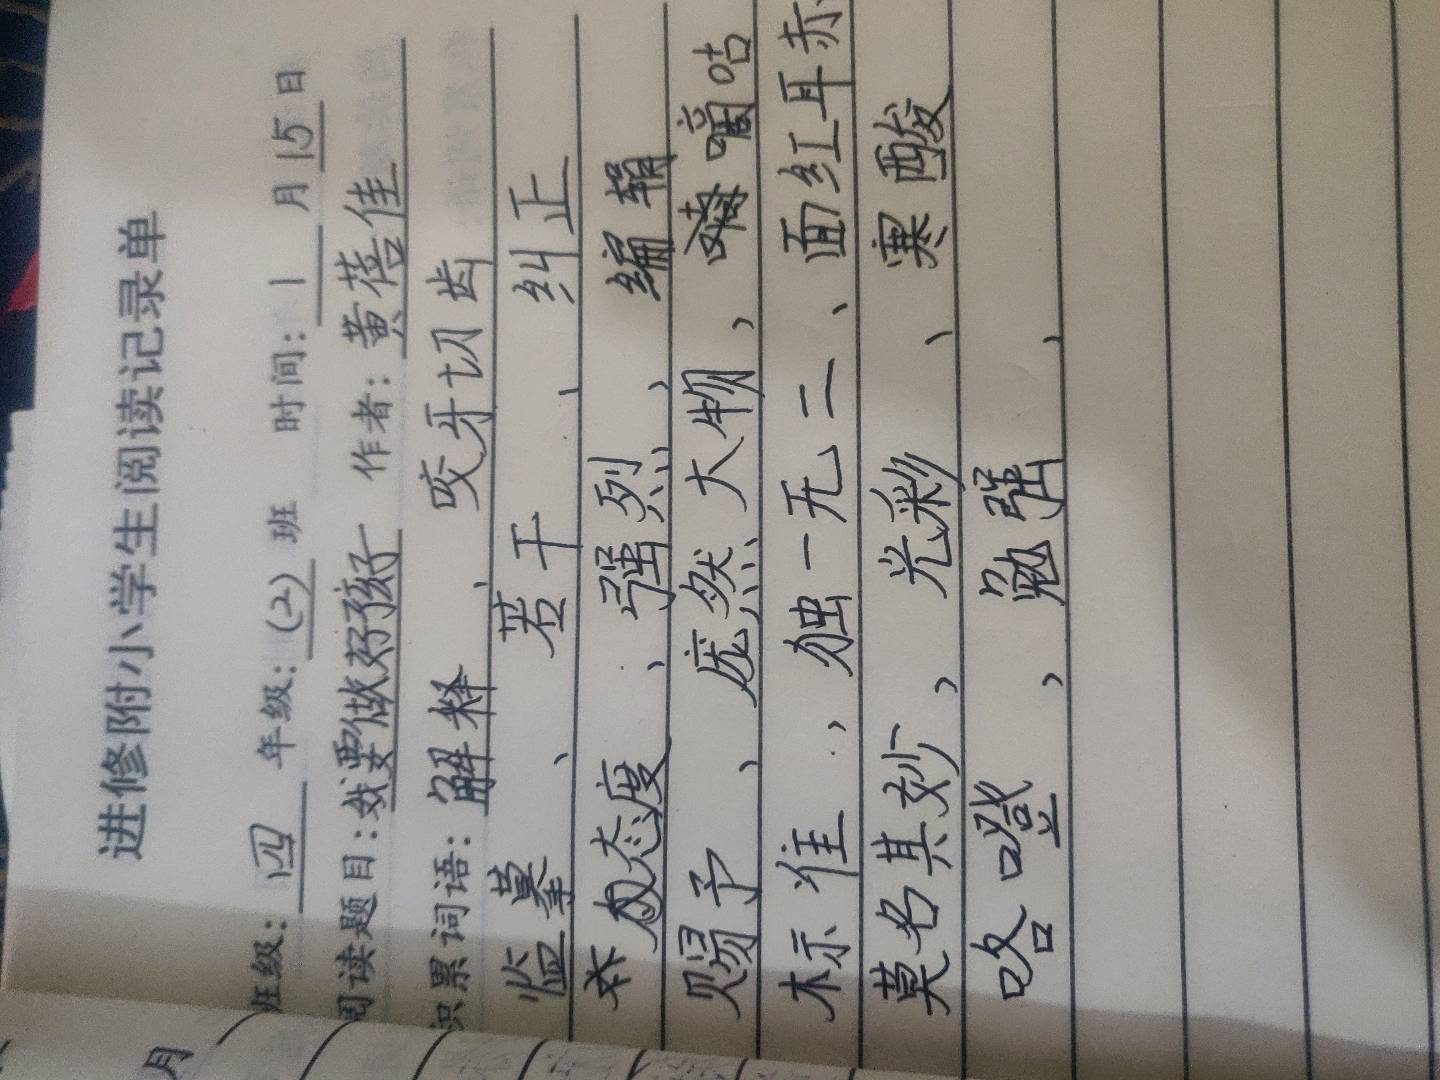 进修附小学生阅读记录单
班级：四 年级：（2）班 时间：1月15日
阅读题目：我要做好孩子 作者：黄蓓佳
积累词语：解释、咬牙切齿
监摹、若干、纠正
态度、强烈、编辑
赐予、庞然大物、嘀咕
标准、独一无二、面红耳赤
莫名其妙、光彩、寒酸
咯噔、勉强、
月